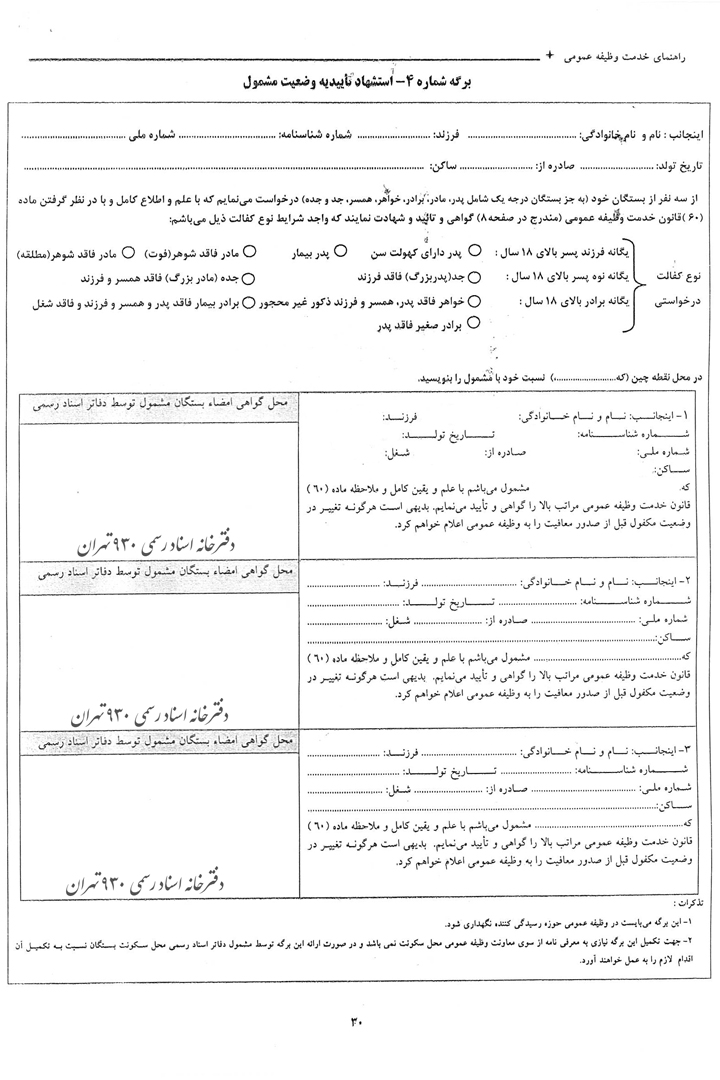 راهنمای خدمت وظیفه عمومی +
برگه شماره ۴- استشهاد تأییدیه وضعیت مشمول
اینجانب : نام و نام خانوادگی: ........................ فرزند: ........................ شماره شناسنامه: ........................ شماره ملی ........................
تاریخ تولد: ........................ صادره از: ........................ ساکن: ........................
از سه نفر از بستگان خود (به جز بستگان درجه یک شامل پدر، مادر، برادر، خواهر، همسر، جد و جده) درخواست می‌نمایم که با علم و اطلاع کامل و با در نظر گرفتن ماده
(۶۰) قانون خدمت وظیفه عمومی (مندرج در صفحه۸) گواهی و تائید و شهادت نمایند که واجد شرایط نوع کفالت ذیل می‌باشم:
نوع کفالت
درخواستی
یگانه فرزند پسر بالای ۱۸ سال : پدر دارای کهولت سن پدر بیمار مادر فاقد شوهر(فوت) مادر فاقد شوهر(مطلقه)
یگانه نوه پسر بالای ۱۸ سال : جد(پدربزرگ) فاقد فرزند جده (مادر بزرگ) فاقد همسر و فرزند
یگانه برادر بالای ۱۸ سال : خواهر فاقد پدر، همسر و فرزند ذکور غیر محجور برادر بیمار فاقد پدر و همسر و فرزند و فاقد شغل
برادر صغیر فاقد پدر
در محل نقطه چین (که........................،) نسبت خود با مشمول را بنویسید.
۱- اینجانب: نام و نام خانوادگی: فرزند:
شماره شناسنامه: تاریخ تولد:
شماره ملی: صادره از: شغل:
ساکن:
که. مشمول می‌باشم با علم و یقین کامل و ملاحظه ماده (۶۰)
قانون خدمت وظیفه عمومی مراتب بالا را گواهی و تأیید می‌نمایم. بدیهی است هرگونه تغییر در
وضعیت مکفول قبل از صدور معافیت را به وظیفه عمومی اعلام خواهم کرد.
محل گواهی امضاء بستگان مشمول توسط دفاتر اسناد رسمی
دفترخانه اسناد رسمی ۹۳۰ تهران
۲- اینجانب: نام و نام خانوادگی: ........................ فرزند: ........................
شماره شناسنامه: ........................ تاریخ تولد: ........................
شماره ملی: ........................ صادره از: ........................ شغل: ........................
ساکن: ........................
که ........................ مشمول می‌باشم با علم و یقین کامل و ملاحظه ماده (۶۰)
قانون خدمت وظیفه عمومی مراتب بالا را گواهی و تأیید می‌نمایم. بدیهی است هرگونه تغییر در
وضعیت مکفول قبل از صدور معافیت را به وظیفه عمومی اعلام خواهم کرد.
محل گواهی امضاء بستگان مشمول توسط دفاتر اسناد رسمی
دفترخانه اسناد رسمی ۹۳۰ تهران
۳- اینجانب: نام و نام خانوادگی: ........................ فرزند: ........................
شماره شناسنامه: ........................ تاریخ تولد: ........................
شماره ملی: ........................ صادره از: ........................ شغل: ........................
ساکن: ........................
که ........................ مشمول می‌باشم با علم و یقین کامل و ملاحظه ماده (۶۰)
قانون خدمت وظیفه عمومی مراتب بالا را گواهی و تأیید می‌نمایم. بدیهی است هرگونه تغییر در
وضعیت مکفول قبل از صدور معافیت را به وظیفه عمومی اعلام خواهم کرد.
محل گواهی امضاء بستگان مشمول توسط دفاتر اسناد رسمی
دفترخانه اسناد رسمی ۹۳۰ تهران
تذکرات :
۱- این برگه می‌بایست در وظیفه عمومی حوزه رسیدگی کننده نگهداری شود.
۲- جهت تکمیل این برگه نیازی به معرفی نامه از سوی معاونت وظیفه عمومی محل سکونت نمی باشد و در صورت ارائه این برگه توسط مشمول دفاتر اسناد رسمی محل سکونت بستگان نسبت به تکمیل آن
اقدام لازم را به عمل خواهند آورد.
۳۰